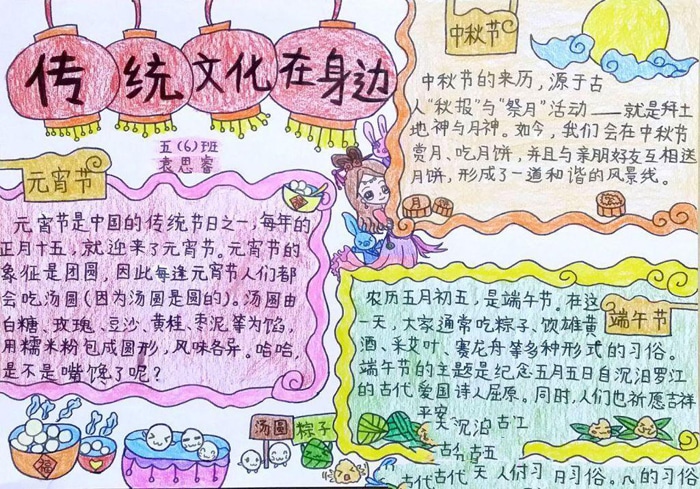 传统文化在身边
五(6)班
袁思睿
中秋节
中秋节的来历，源于古
人“秋报”与“祭月”活动——就是拜土
地神与月神。如今，我们会在中秋节
赏月、吃月饼，并且与亲朋好友互相送
月饼，形成了一道和谐的风景线。
月
元宵节
元宵节是中国的传统节日之一，每年的
正月十五，就迎来了元宵节。元宵节的
象征是团圆，因此每逢元宵节人们都
会吃汤圆(因为汤圆是圆的)。汤圆由
白糖、玫瑰、豆沙、黄桂、枣泥等为馅，
用糯米粉包成圆形，风味各异。哈哈，
是不是嘴馋了呢？
福
汤圆
粽子
端午节
农历五月初五，是端午节。在这
一天，大家通常吃粽子、饮雄黄
酒、采艾叶、赛龙舟等多种形式的习俗。
端午节的主题是纪念五月五日自沉汨罗江
的古代爱国诗人屈原。同时，人们也祈愿吉祥
平安
天沉汨古江
古代古五
古代古代天人付习月习俗。八的习俗